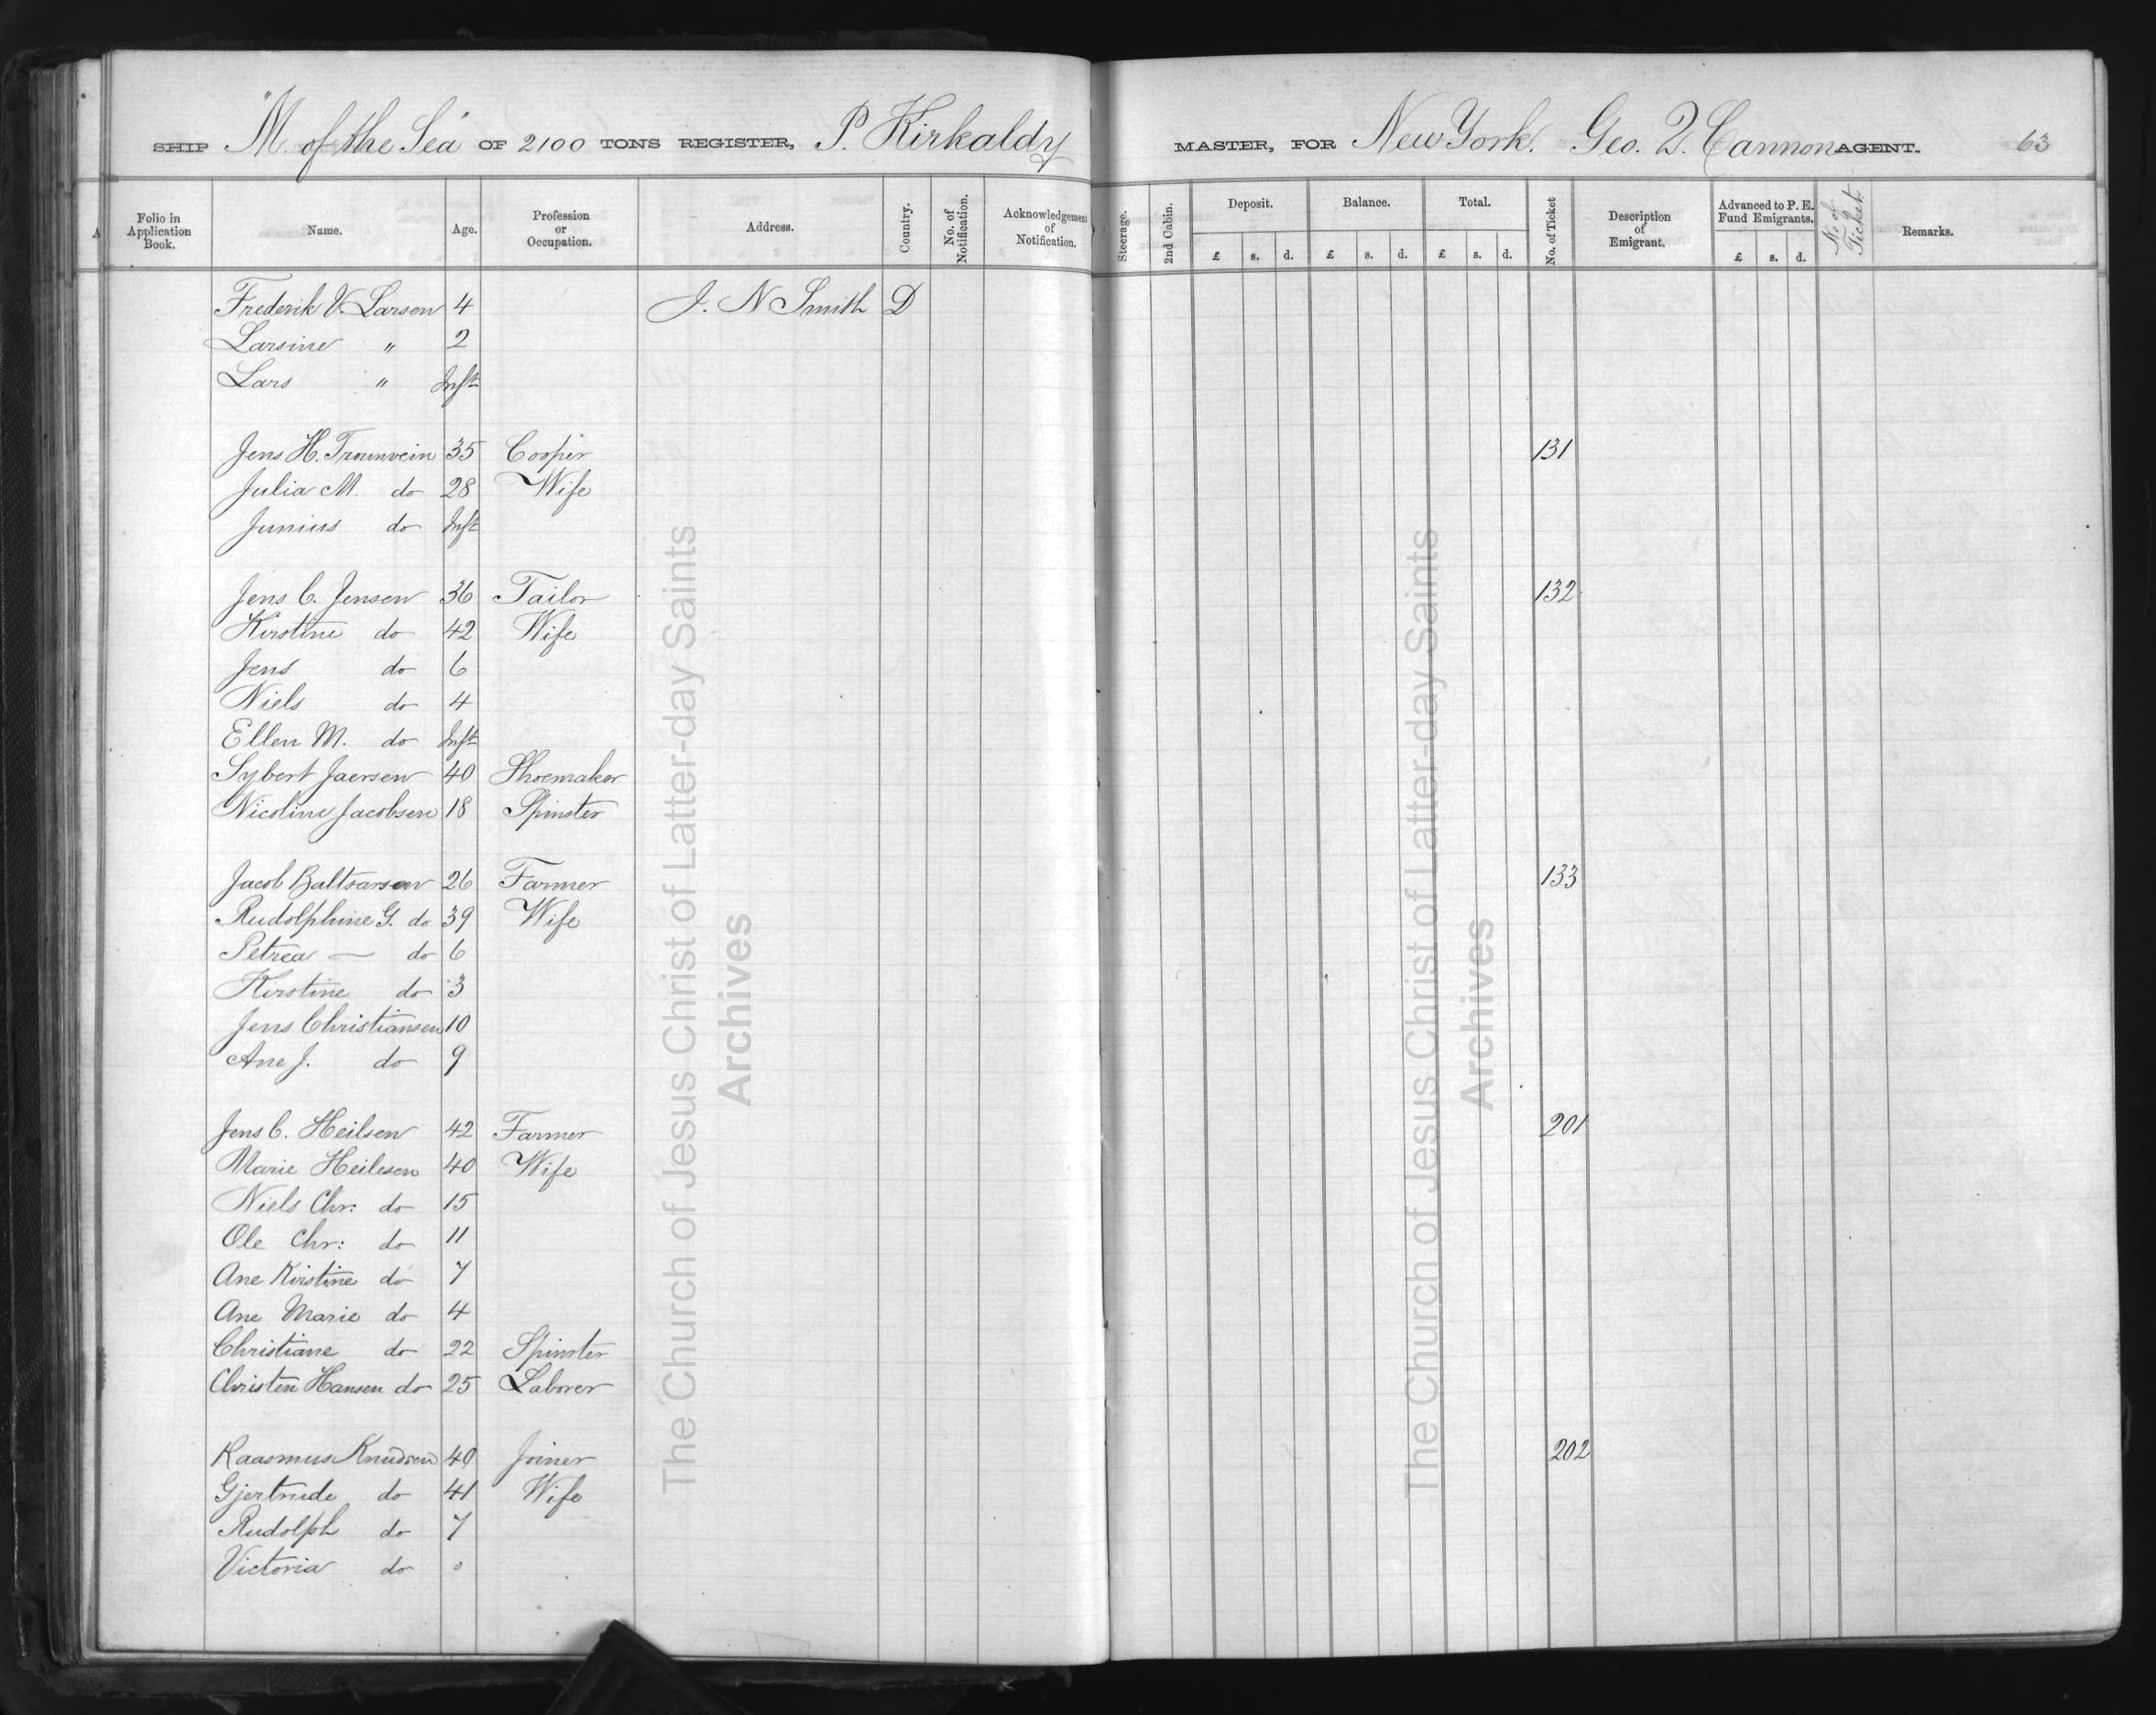 SHIP "M. of the Sea" OF 2100 TONS REGISTER, P. Kirkaldy MASTER, FOR New York. Geo. Q. Cannon AGENT. 63
Folio in Application Book. Name. Age. Profession or Occupation. Address. Country. No. of Notification. Acknowledgement of Notification. Steerage. 2nd Cabin. Deposit. Balance. Total. No. of Ticket Description of Emigrant. Advanced to P. E. Fund Emigrants. No of Ticket. Remarks.
£ s. d. £ s. d. £ s. d. £ s. d.
Frederik V. Larsen 4 J. N Smith D
Larsine " 2
Lars " Inft
Jens H. Trounvein 35 Cooper 131
Julia M. do 28 Wife
Junius do Inft
Jens C. Jensen 36 Tailor 132
Kirstine do 42 Wife
Jens do 6
Niels do 4
Ellen M. do Inft
Sybert Jaersen 40 Shoemaker
Nicoline Jacobsen 18 Spinster
Jacob Baltsarsen 26 Farmer 133
Rudolphine G. do 39 Wife
Petrea — do 6
Kirstine do 3
Jens Christiansen 10
Ane J. do 9
Jens C. Heilsen 42 Farmer 201
Marie Heilesen 40 Wife
Niels Chr: do 15
Ole Chr: do 11
Ane Kirstine do 7
Ane Marie do 4
Christiane do 22 Spinster
Christen Hansen do 25 Laborer
Raasmus Knudsen 40 Joiner 202
Gjertrude do 41 Wife
Rudolph do 7
Victoria do 0
The Church of Jesus Christ of Latter-day Saints
Archives
The Church of Jesus Christ of Latter-day Saints
Archives